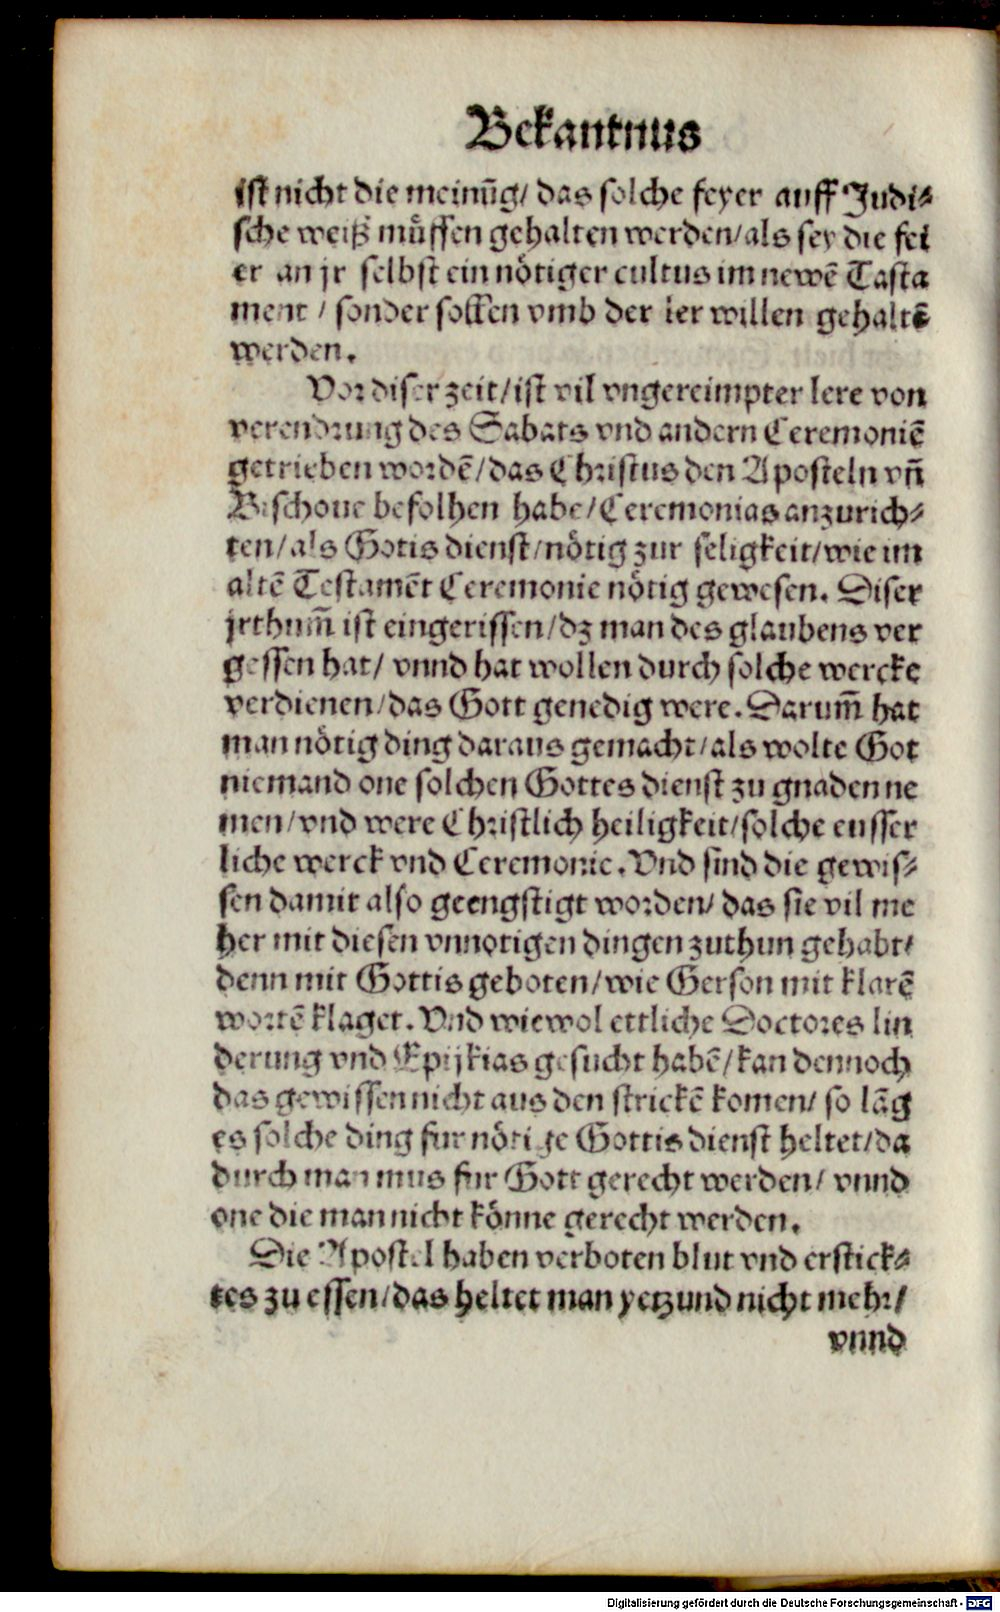 Bekantnus
ist nicht die meinūg/ das solche feyer auff Judi⸗
sche weiß müssen gehalten werden/ als sey die fei
er an jr selbst ein nötiger cultus im newē Tasta
ment / sonder sollen vmb der ler willen gehaltē
werden.
Vor diser zeit/ ist vil vngereimpter lere von
verendrung des Sabats vnd andern Ceremoniē
getrieben wordē/ das Christus den Aposteln vñ
Bischoue befolhen habe/ Ceremonias anzurich⸗
ten/ als Gotis dienst/ nötig zur seligkeit/ wie im
altē Testamēt Ceremonie nötig gewesen. Diser
jrthum̄ ist eingerissen/ dz man des glaubens ver
gessen hat/ vnnd hat wollen durch solche wercke
verdienen/ das Gott genedig were. Darum̄ hat
man nötig ding daraus gemacht/ als wolte Got
niemand one solchen Gottes dienst zu gnaden ne
men/ vnd were Christlich heiligkeit/ solche eusser
liche werck vnd Ceremonie. Vnd sind die gewis⸗
sen damit also geengstigt worden/ das sie vil me
her mit diesen vnnotigen dingen zuthun gehabt/
denn mit Gottis geboten/ wie Gerson mit klarē
wortē klaget. Vnd wiewol ettliche Doctores lin
derung vnd Epijkias gesucht habē/ kan dennoch
das gewissen nicht aus den strickē komen/ so lāg
es solche ding fur nötige Gottis dienst heltet/ da
durch man mus fur Gott gerecht werden/ vnnd
one die man nicht könne gerecht werden.
Die Apostel haben verboten blut vnd erstick⸗
tes zu essen/ das heltet man yetzund nicht mehr/
vnnd
Digitalisierung gefördert durch die Deutsche Forschungsgemeinschaft - DFG